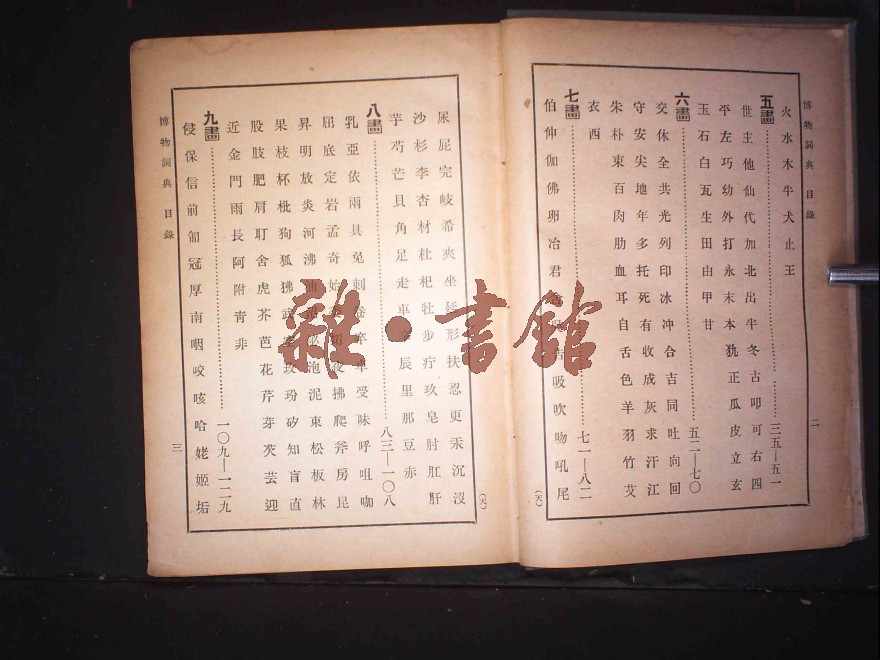 博物詞典 目錄
二
火水木牛犬止王
五畫 三五—五一
世主他仙代加北出半冬古叩可右四
平左巧幼外打永末本犰正瓜皮立玄
玉石白瓦生田由甲甘
六畫 五二—七〇
交休全共光列印冰冲合吉同吐向回
守安尖地年多托死有收成灰求汗江
朱朴束百肉肋血耳自舌色羊羽竹艾
衣西
七畫 七一—八二
伯伸伽佛卵冶君 吸吹吻吼尾
尿屁完岐希夾坐延形扶忍更汞沉沒
沙杉李杏材杜杞牡步疔玖皂肘肛肝
芋芍芒貝角足走車 辰里那豆赤
八畫 八三—一〇八
乳亞依兩具兔刺卷卒卓受味呼咀咖
屈底定岩孟奇始 夜拂爬斧房昆
昇明放炎河沸油 泡泥東松板林
果枝杯枇狗狐狒武 玫玢矽知盲直
股肢肥肩肛舍虎芥芭花芹芽芡芸迎
近金門雨長阿附青非
九畫 一〇九—一二九
侵保信前匍冠厚南咽咬咳哈姥姬垢
博物詞典 目錄
三
雜·書館